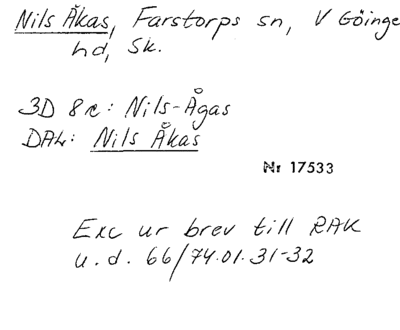 Nils Åkas, Farstorps sn, V Göinge
hd, Sk.
3D 8c: Nils-Ågas
DAL: Nils Åkas
Nr 17533
Exc ur brev till RAK
u.d. 66/74.01.31-32